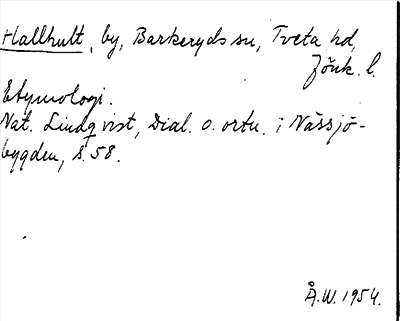 Hallhult, by, Barkeryds sn, Tveta hd,
Jönk. l.
Etymologi.
Nat. Lindqvist, Dial. o. ortn. i Nässjö-
bygden, s. 58.
Å.W. 1954.